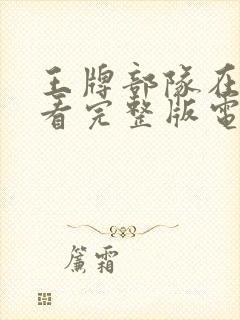 王牌部隊在
看完整版電
簾霜